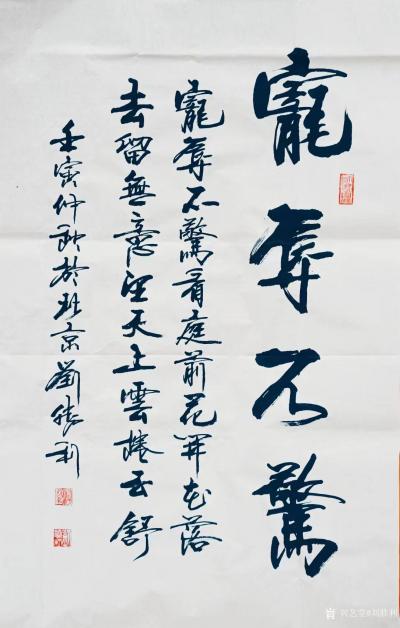 寵辱不驚
寵辱不驚看庭前花開花落
去留無意望天上雲捲雲舒
壬寅仲秋於北京劉勝利